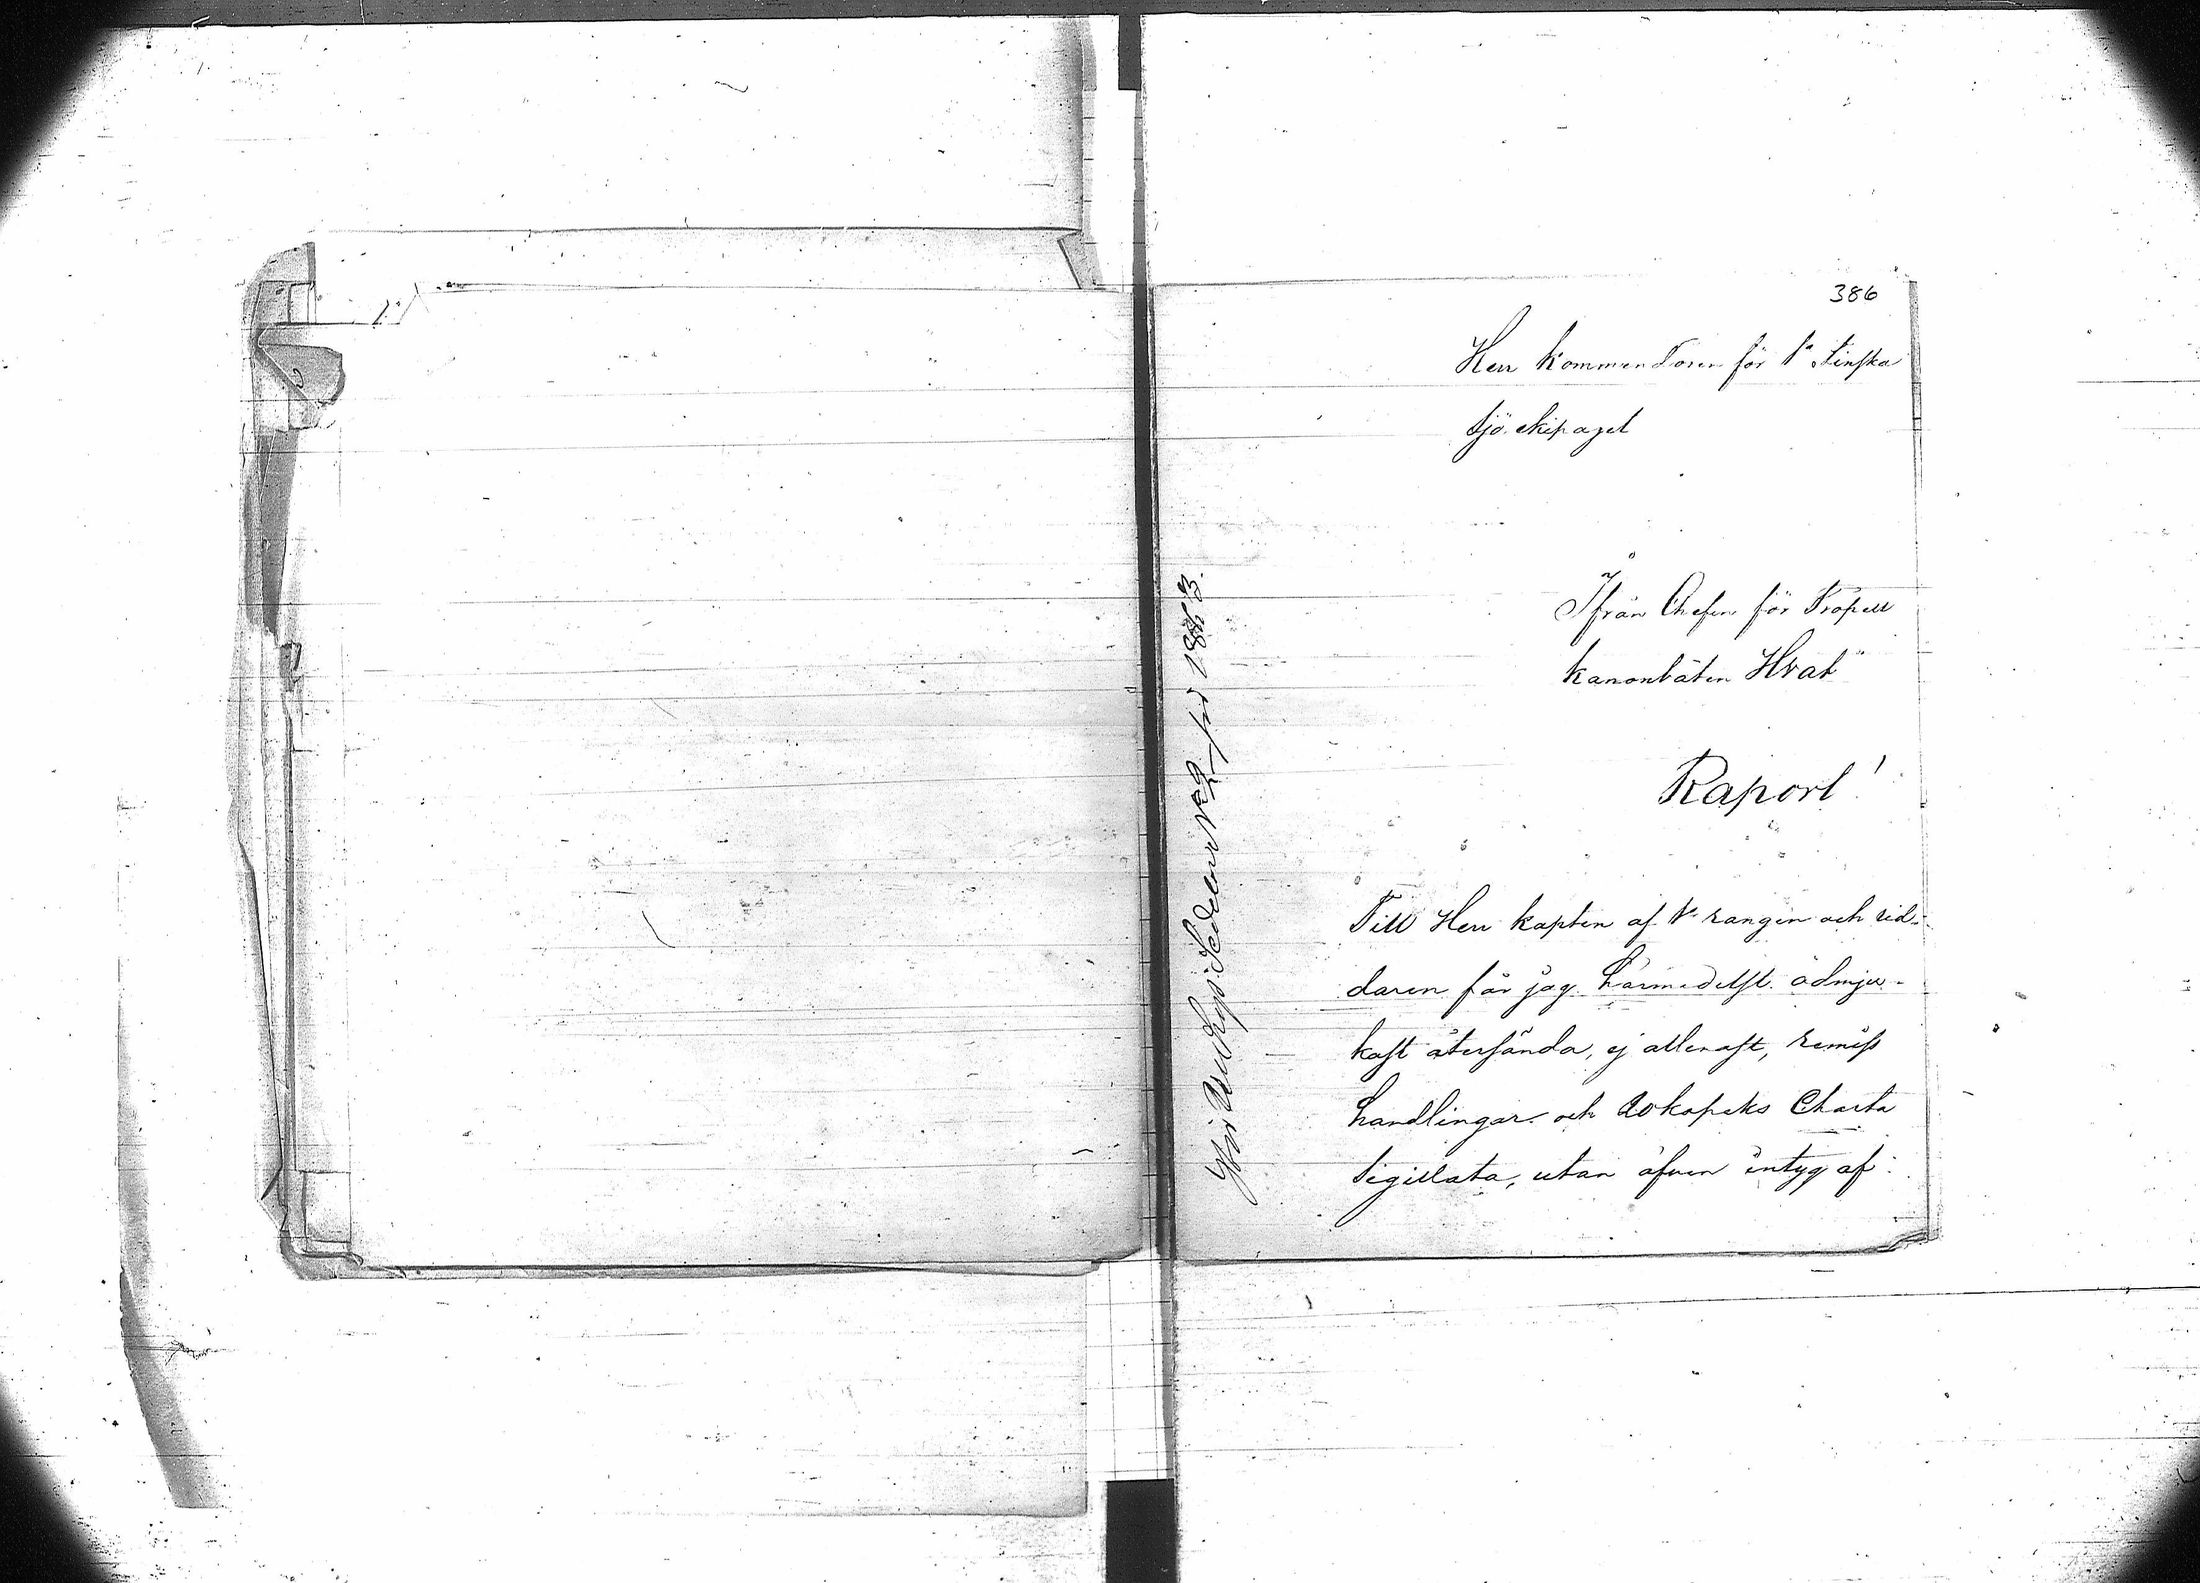 386
Herr Kommendoren för 1a Finska
Sjö ekipaget
Ifrån Chefen för Propell
kanonbåten Hvat"
Raport!
Till Herr Kapten af 1a rangen och rid-
daren får jag härmedelst ödmju-
kast återsända, ej allenast, remiss
handlingar och 20 kopeks Charta
Sigillata, utan äfven intyg af
för 1863.